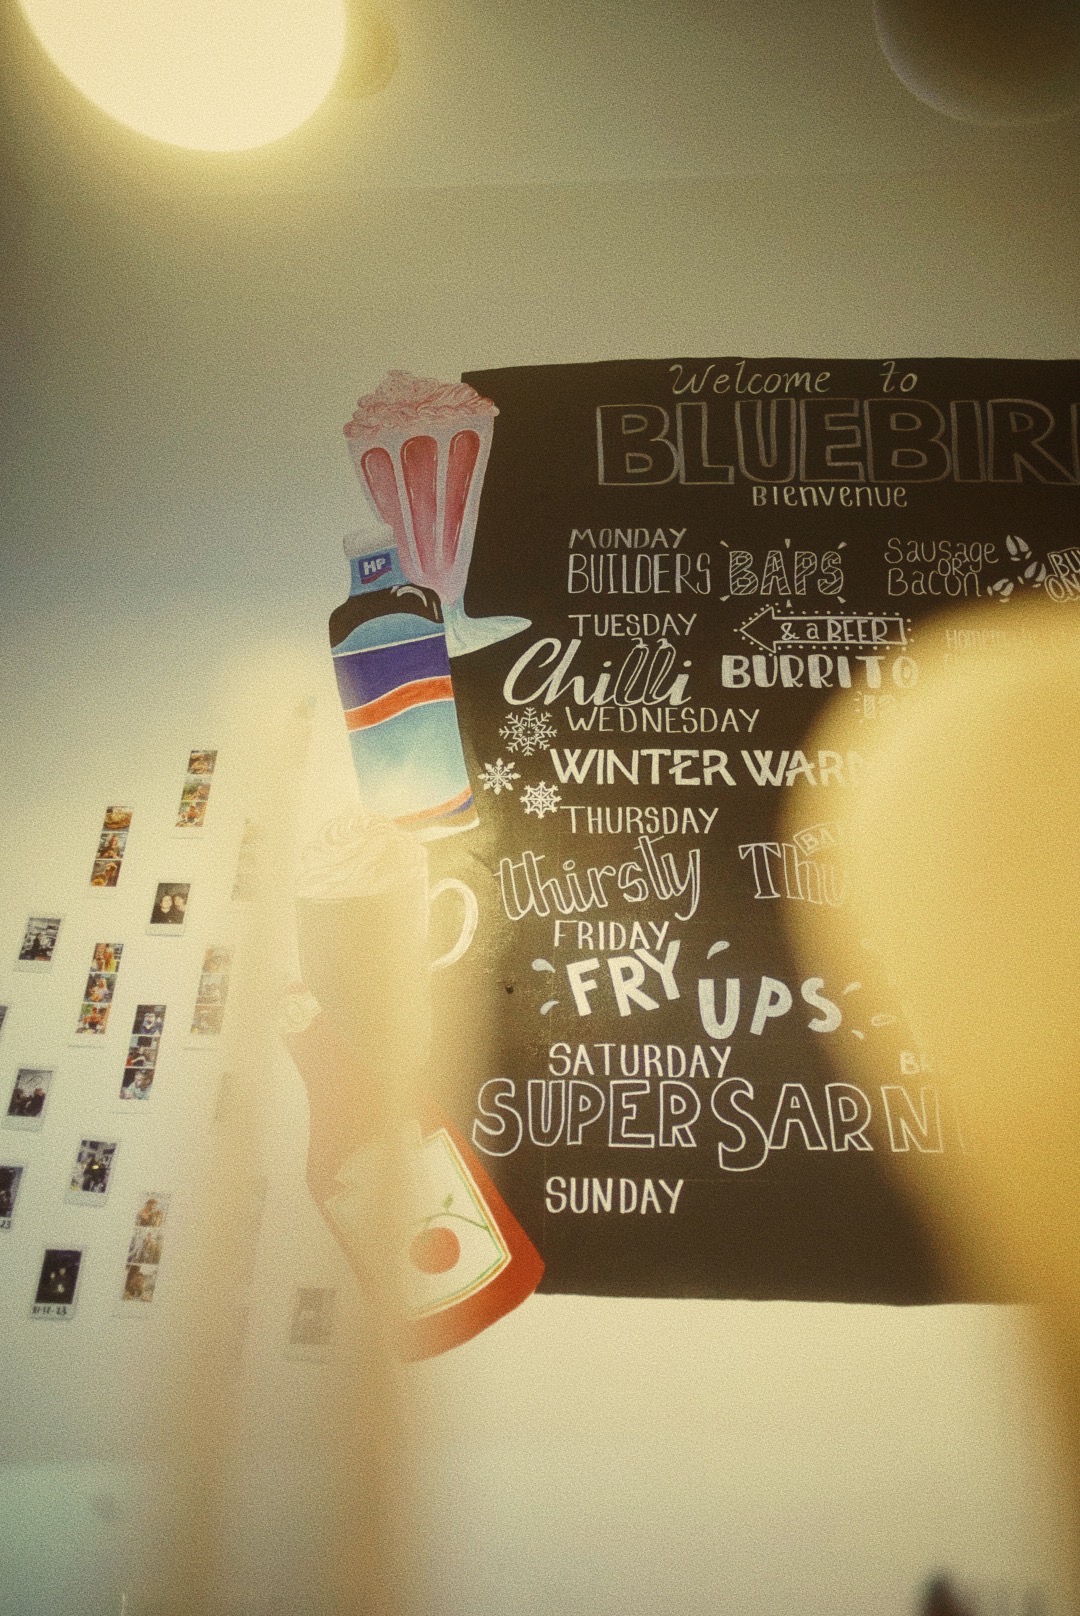 Welcome to
BLUEBIR
BIENVENUE
MONDAY
BUILDERS BAPS Sausage OR Bacon
TUESDAY
& a BEER
Chilli BURRITO
WEDNESDAY
WINTER WAR
THURSDAY
thirsty Thu
FRIDAY
FRY UPS
SATURDAY
SUPER SARN
SUNDAY
HP